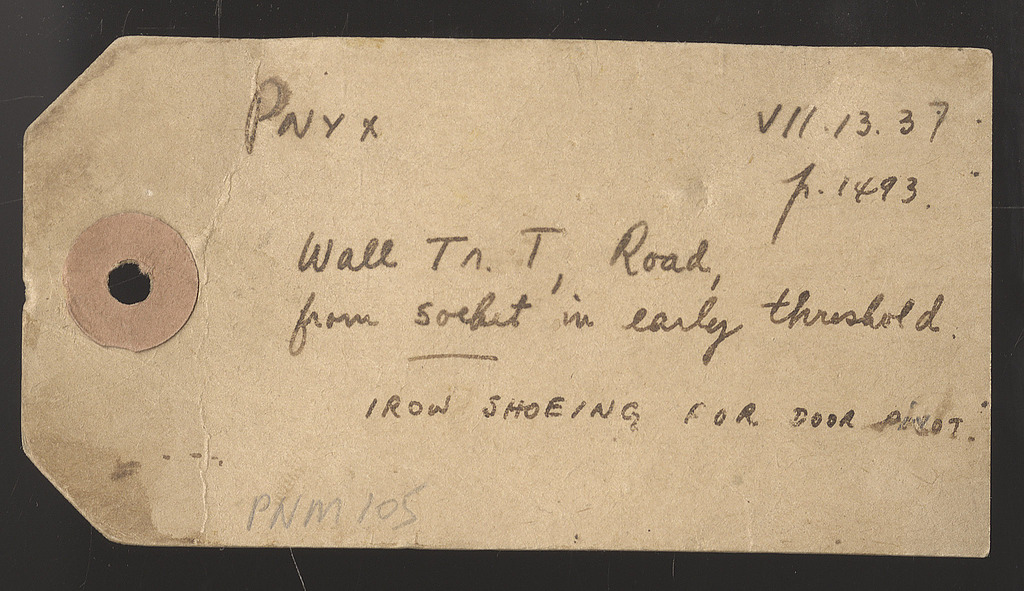 PNYX
VII.13.37
p. 1493.
Wall Tr. T, Road,
from socket in early threshold.
IRON SHOEING FOR DOOR PIVOT.
PNM 105